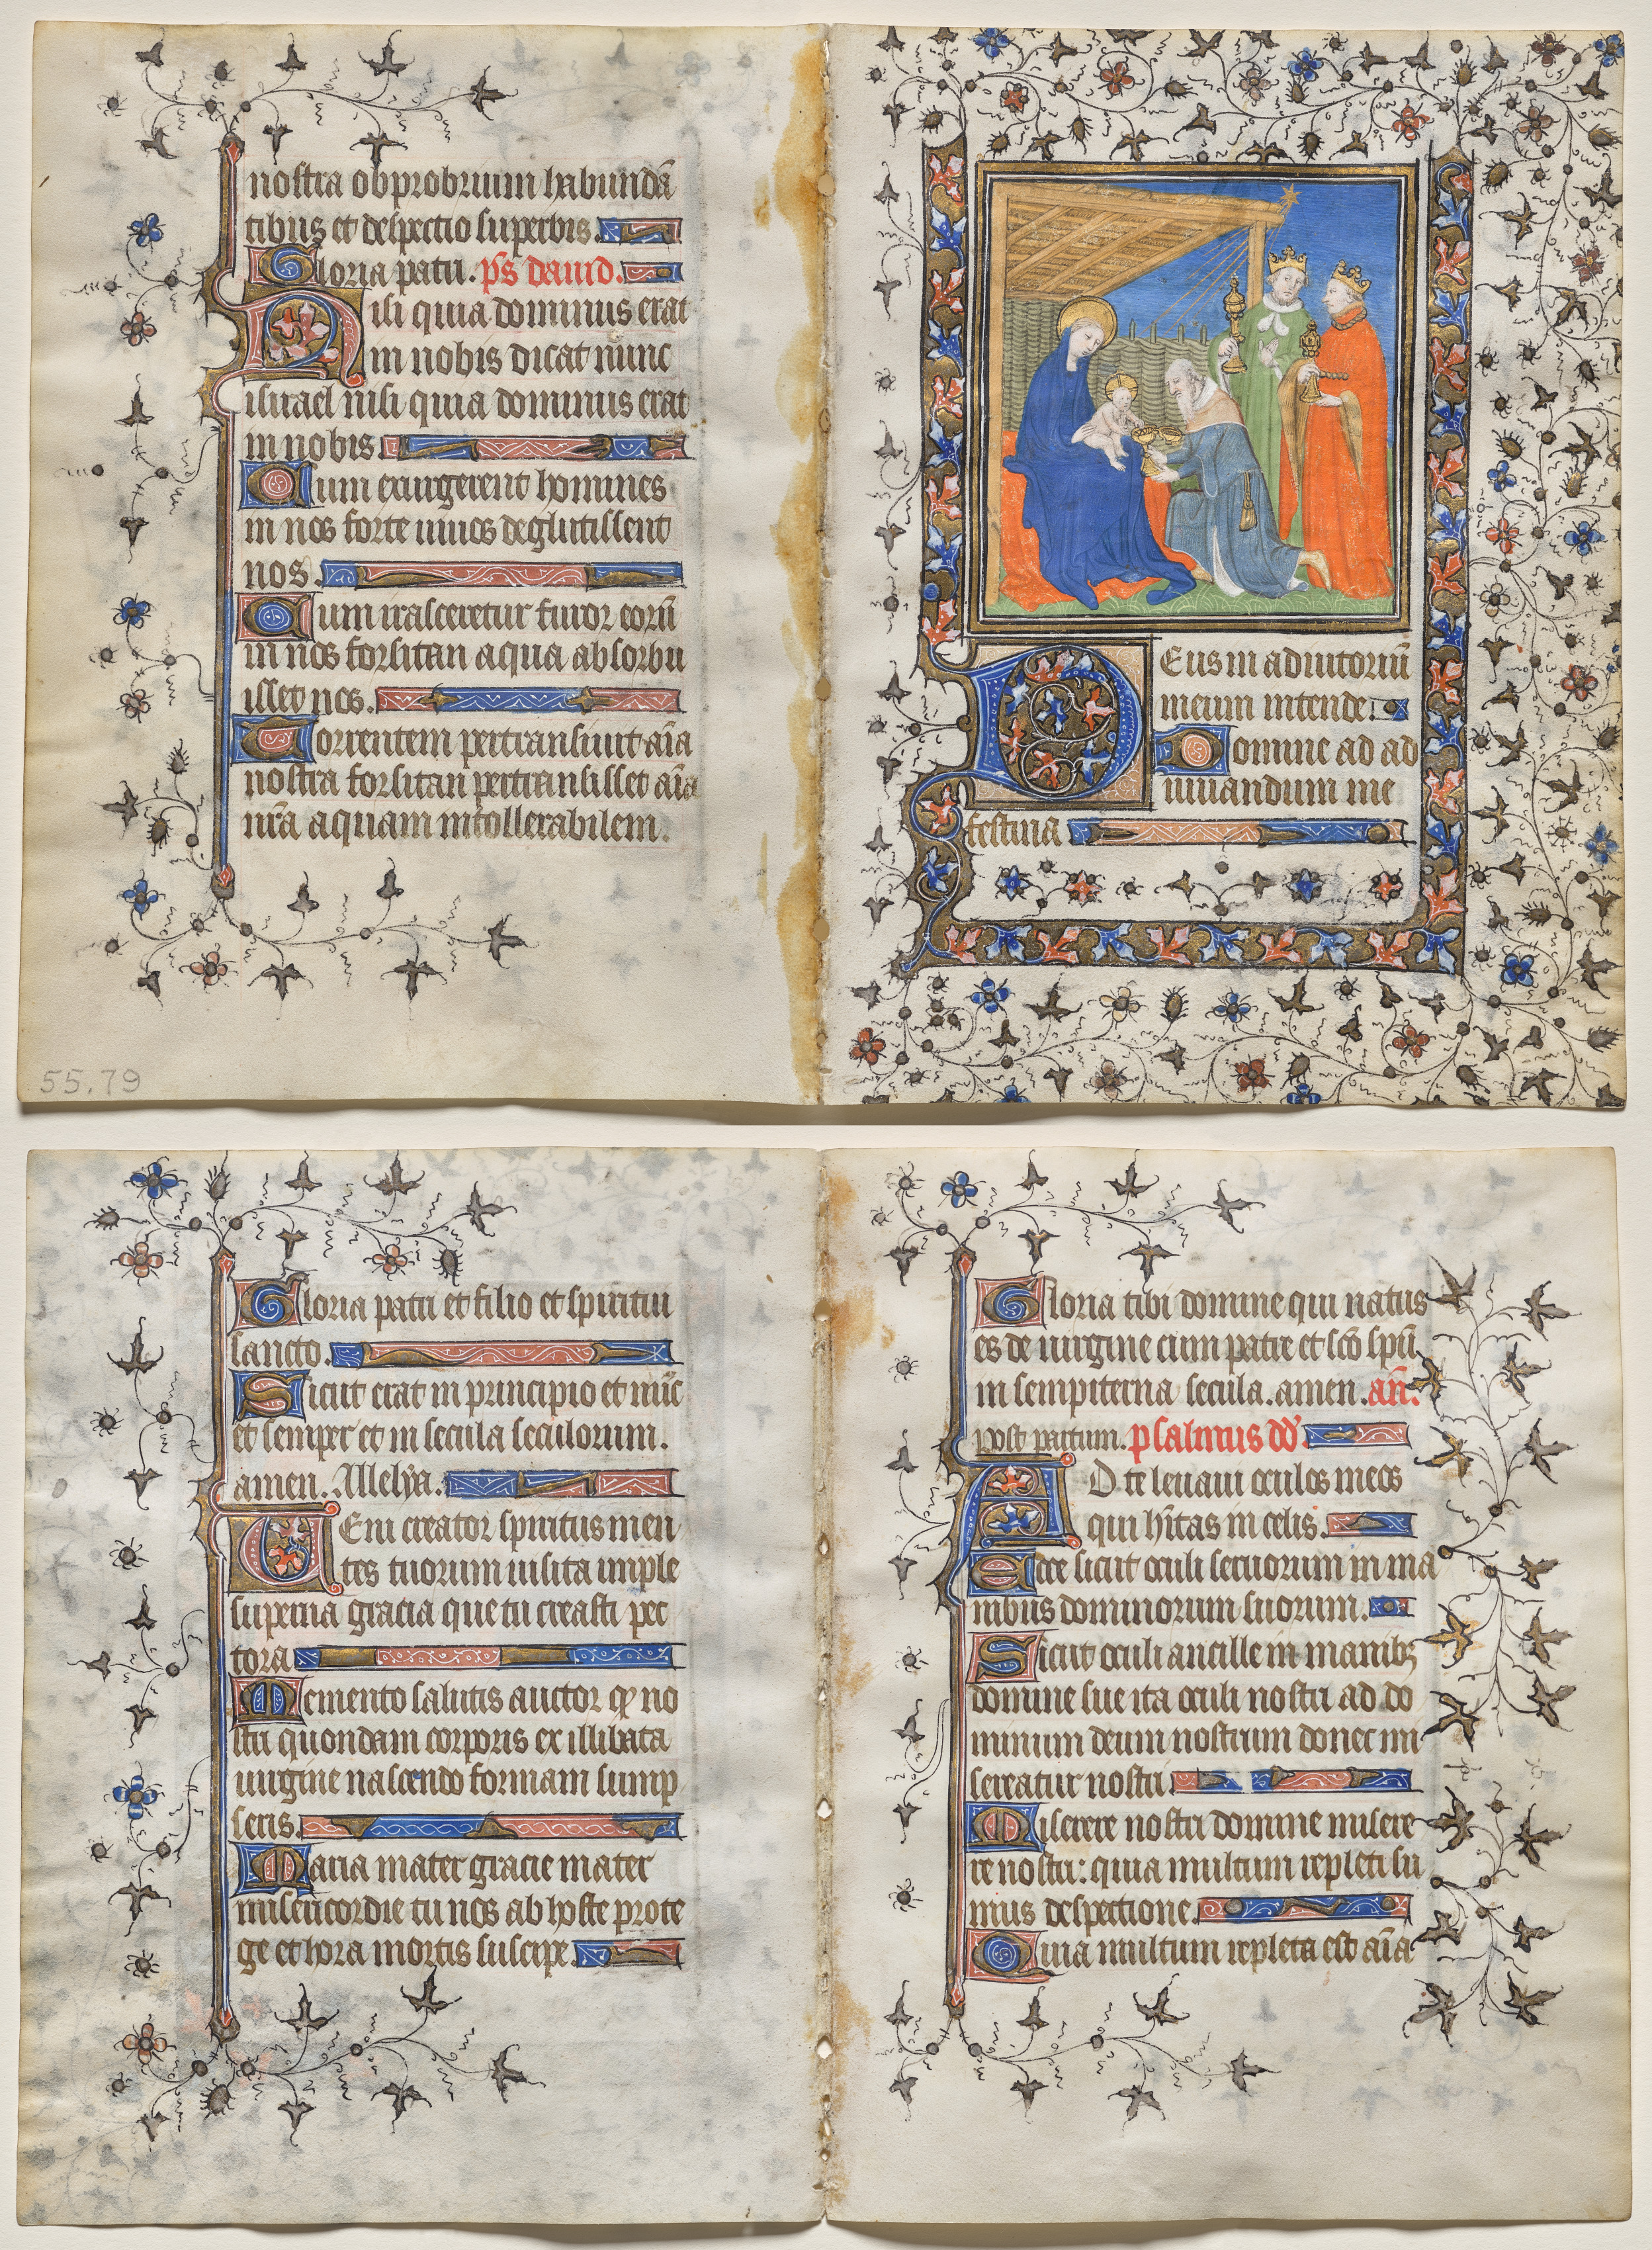 nostra obprobrium habundā
tibus et despectio superbis.
Gloria patri. p̄s dauid.
Nisi quia dominus erat
in nobis dicat nunc
israel nisi quia dominus erat
in nobis
Cum exurgerent homines
in nos forte uiuos deglutissent
nos.
Cum irasceretur furor eorū
in nos forsitan aqua absorbu
isset nos.
Torrentem pertransiuit aīa
nostra forsitan pertransisset aīa
nr̄a aquam intollerabilem.
55.79
Deus in adiutoriū
meum intende.
Domine ad ad
iuuandum me
festina
Gloria patri et filio et spiritui
sancto.
Sicut erat in principio et nūc
et semper et in secula seculorum.
amen. Alleluya.
Ueni creator spiritus men
tes tuorum uisita imple
superna gracia que tu creasti pec
tora
Memento salutis auctor qꝫ no
stri quondam corporis ex illibata
uirgine nascendo formam sump
seris.
Maria mater gracie mater
misericordie tu nos ab hoste prote
ge et hora mortis suscipe.
Gloria tibi domine qui natus
es de uirgine cum patre et sc̄o sp̄u
in sempiterna secula. amen. an̄.
post partum. psalmus dd̄.
AD te leuaui oculos meos
qui hītas in celis.
Ecce sicut oculi seruorum in ma
nibus dominorum suorum.
Sicut oculi ancille in manibꝫ
domine sue ita oculi nostri ad do
minum deum nostrum donec mi
sereatur nostri.
Miserere nostri domine misere
re nostri: quia multum repleti su
mus despectione.
Quia multum repleta est aīa